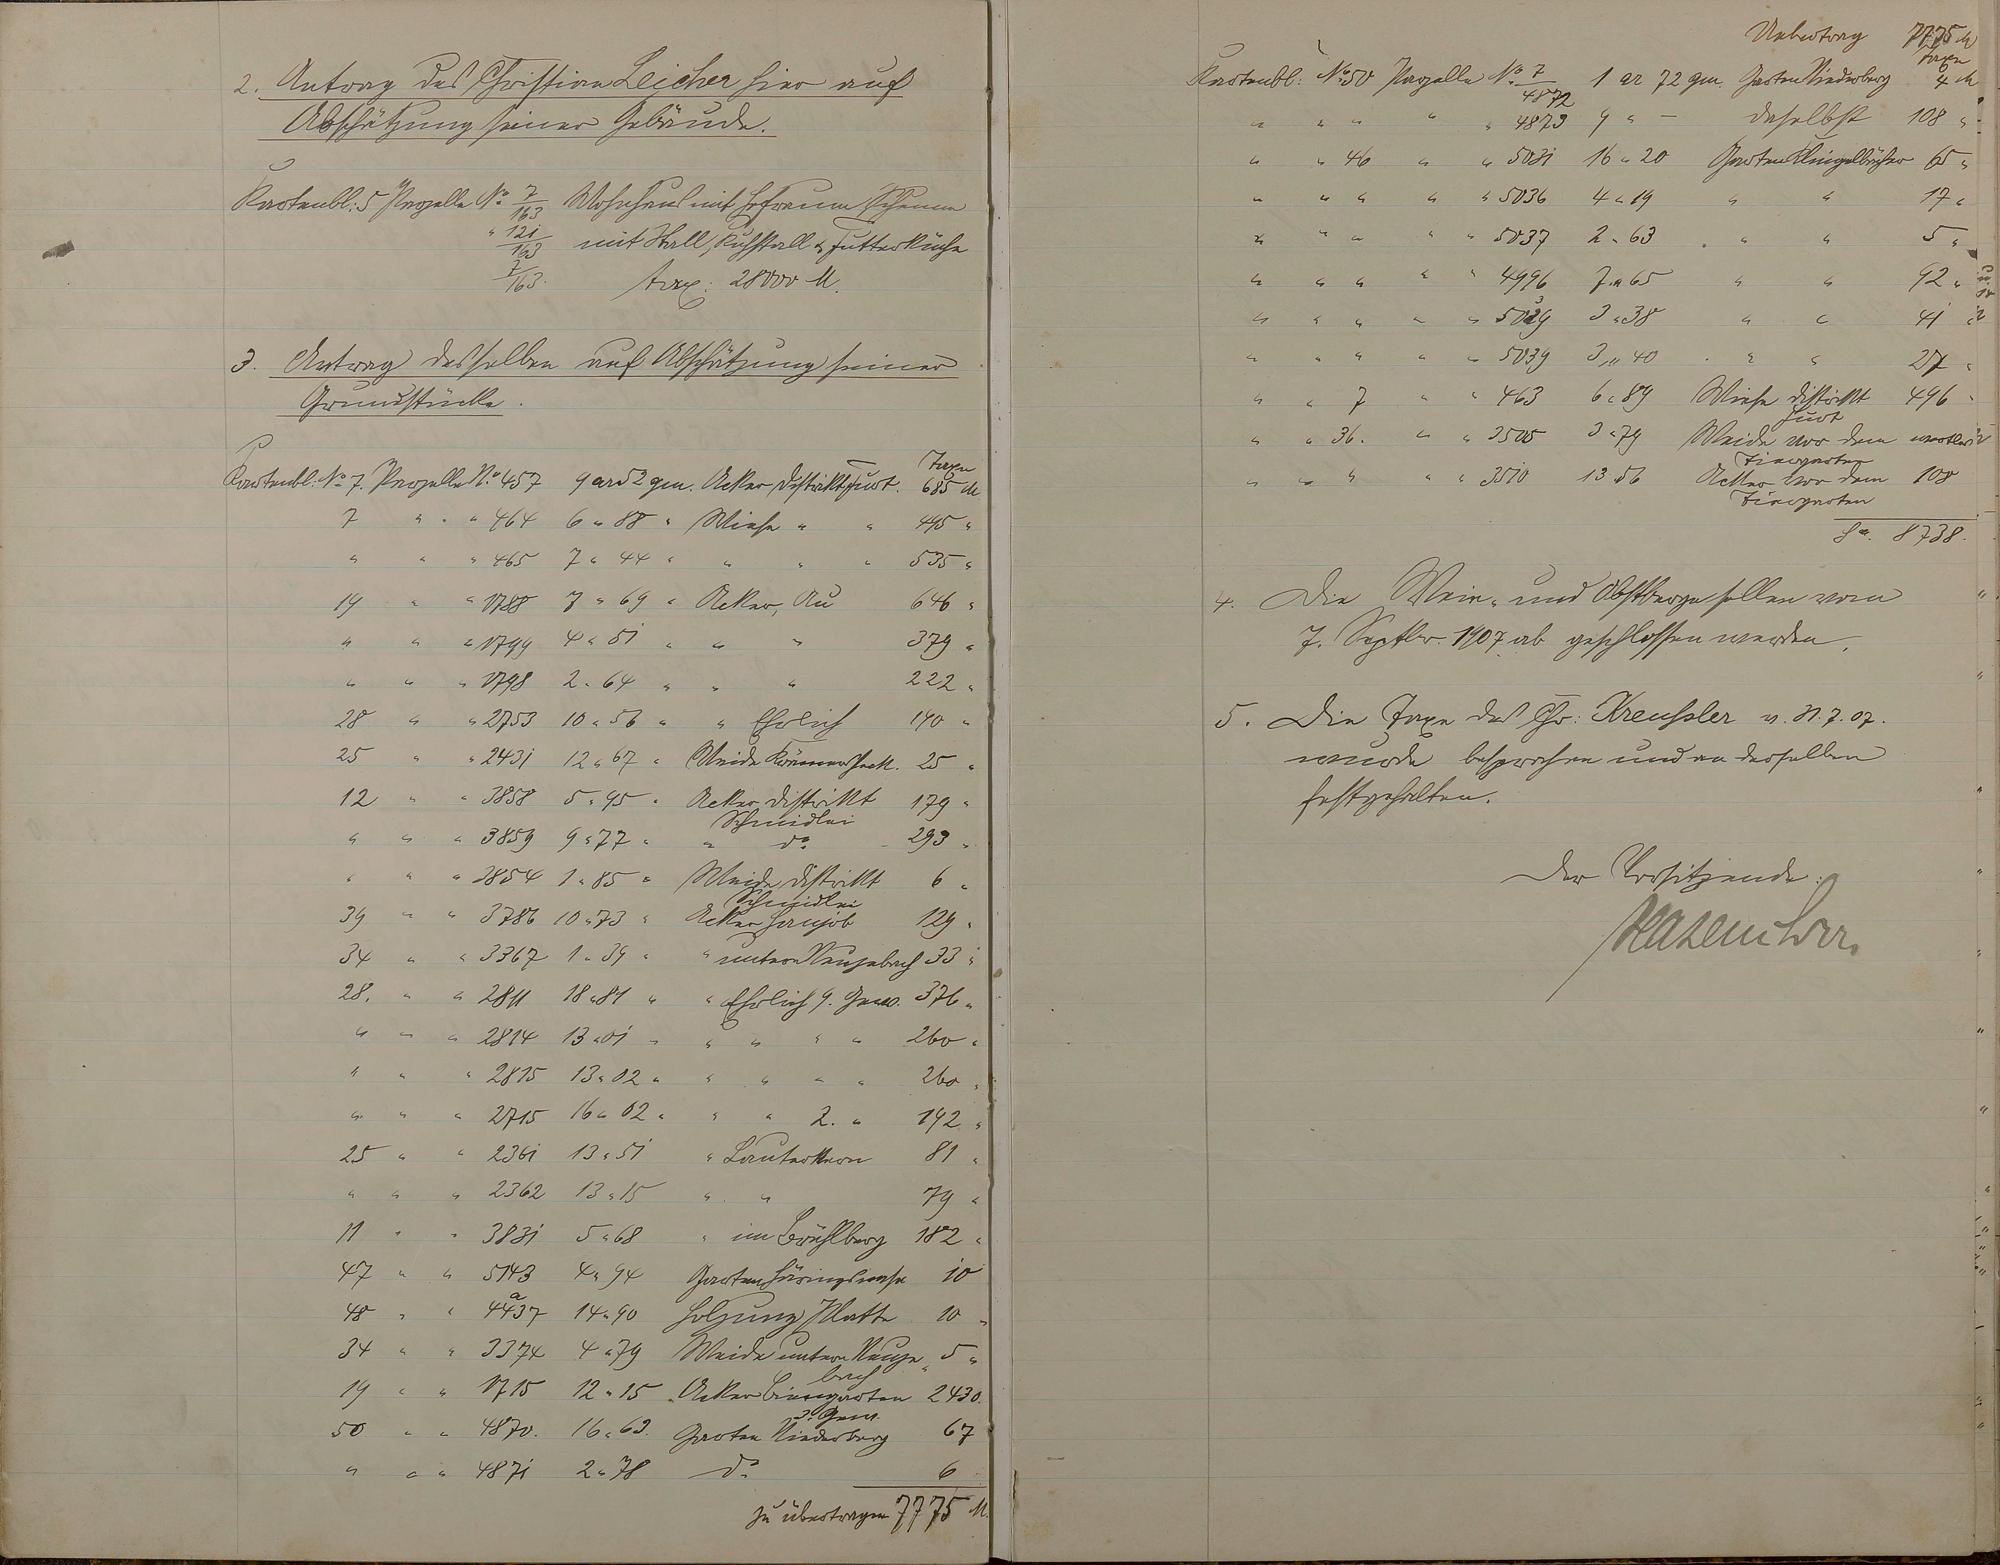 2. Antrag des Christian Leicher hier auf
Abschätzung seiner Gebäude.
Kartenbl: 5 Parzelle No 7/163 Wohnhaus mit Hofraum, Scheune
" 121/163 mit Stall, Kuhstall & Futterküche
7/163. tax: 28000 M.
3. Antrag desselben auf Abschätzung seiner
Grundstücke.
Taxe
Kartenbl: No 7. Parzelle No 457 9 ar 52 qm. Acker, Distrikt Hurt. 685 M
7 " " " 464 6 " 88 " Wiese " " 445 "
" " " 465 7 " 44 " " " " 535 "
19 " " 1788 7 " 69 " Acker, Au 646 "
" " " 1799 4 " 51 " " " 379 "
" " " 1798 2 " 64 " " " 222 "
28 " " 2753 10 " 56 " " Ehrlich 140 "
25 " " 2431 12 " 67 " Weide 25 "
12 " " 3858 5 " 95 " Acker Distrikt 179 "
Schmidlei
" " " 3859 9 " 77 " " do 293 "
" " " 3854 1 " 85 " Weide, Distrikt 6 "
Schmidlei
39 " " 3786 10 " 73 " Acker 129 "
34 " " 3367 1 " 39 " " unterm 33 "
28. " " 2811 18 " 81 " " Ehrlich 9. Gew. 376 "
" " " 2814 13 " 01 " " " " " 260 "
" " " 2815 13 " 02 " " " " " 260 "
" " " 2715 16 " 02 " " " 2. " 192 "
25 " " 2361 13 " 51 " Lauterkern 81 "
" " " 2362 13 " 15 " " 79 "
11 " " 3831 5 " 68 " im Brühlberg 182 "
47 " " 5143 4 " 94 Garten 10
a
48 " " 4437 14 " 90 Holzung Platte 10 "
34 " " 3374 4 " 79 Weide unterm 5 "
bach
19 " " 1715 12 " 15 Acker Biengarten 2430.
3. Gew.
50 " " 4870. 16 " 63. Garten Niederberg 67
" " " 4871 2 " 78 do 6
zu übertragen 7775 M.
Uebertrag 7775 M
Taxe
Kartenbl: No 50 Parzelle No 7/4872 1 ar 72 qm. Garten Niederberg 4 M
" " " " " 4873 9 " – daselbst 108 "
" " 46 " " 5031 16 " 20 Garten 65 "
" " " " " 5036 4 " 19 " " 17 "
" " " " " 5037 2 " 63 " " 5 "
" " " " " 4996 7 " 65 " " 92 "
" " " " " 5029 3 " 38 " " 41 "
" " " " " 5039 3 " 40 " " 27 "
" " 7 " " 463 6 " 89 Wiese Distrikt 496 "
Hurt
" " 36. " " 3505 3 " 79 Weide vor dem wertlos
Tiergarten
" " " " " 3510 13 " 56 Acker vor dem 108
Tiergarten
Sa. 8738.
4. Die Wein- und Obstberge sollen vom
7. Septbr. 1907 ab geschlossen werden.
5. Die Taxe des Chr: Kreussler v. 31.7.07.
wurde besprochen und an derselben
festgehalten.
Der Vorsitzende: